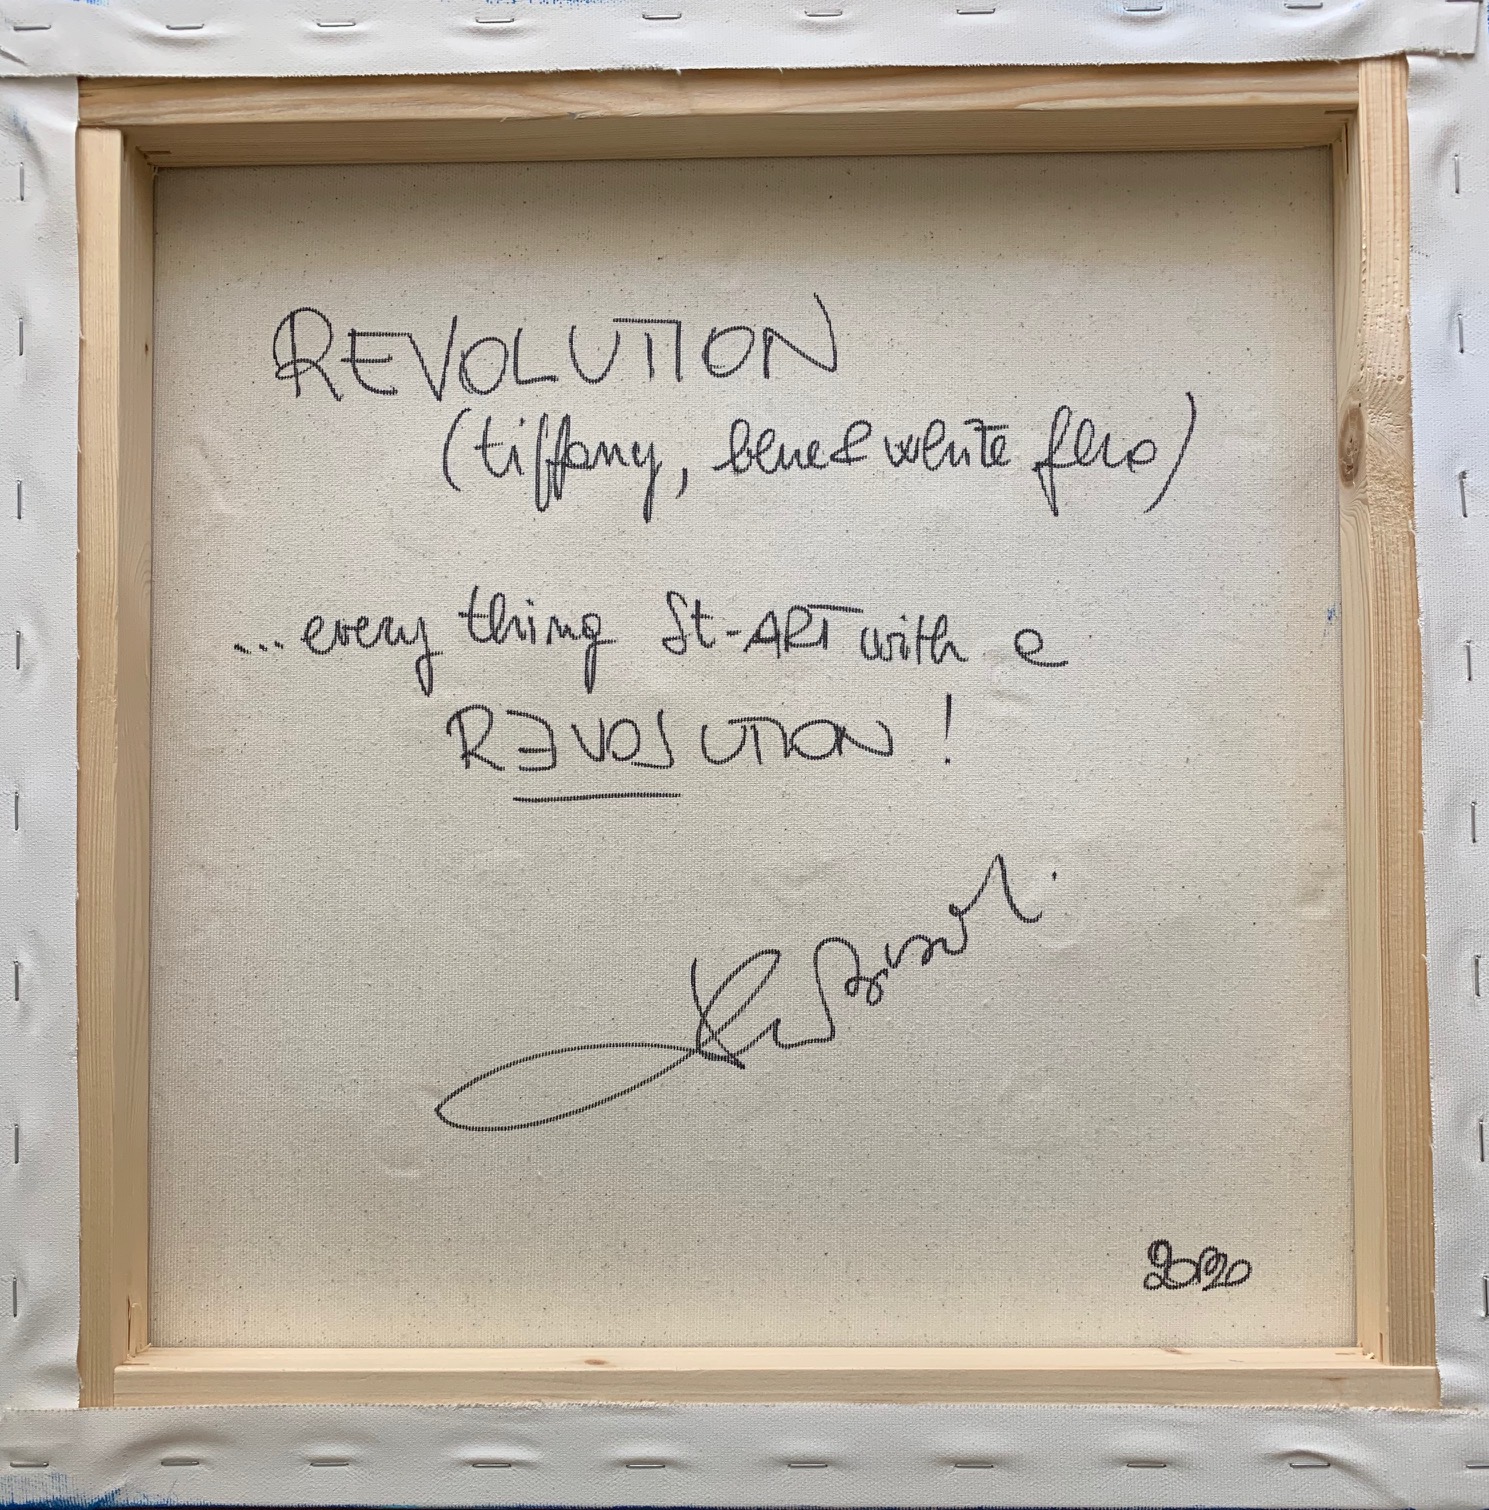 REVOLUTION
(tiffany, blue & white fluo)
...every thing St-ART with a
RƎVOLUTION!
2020